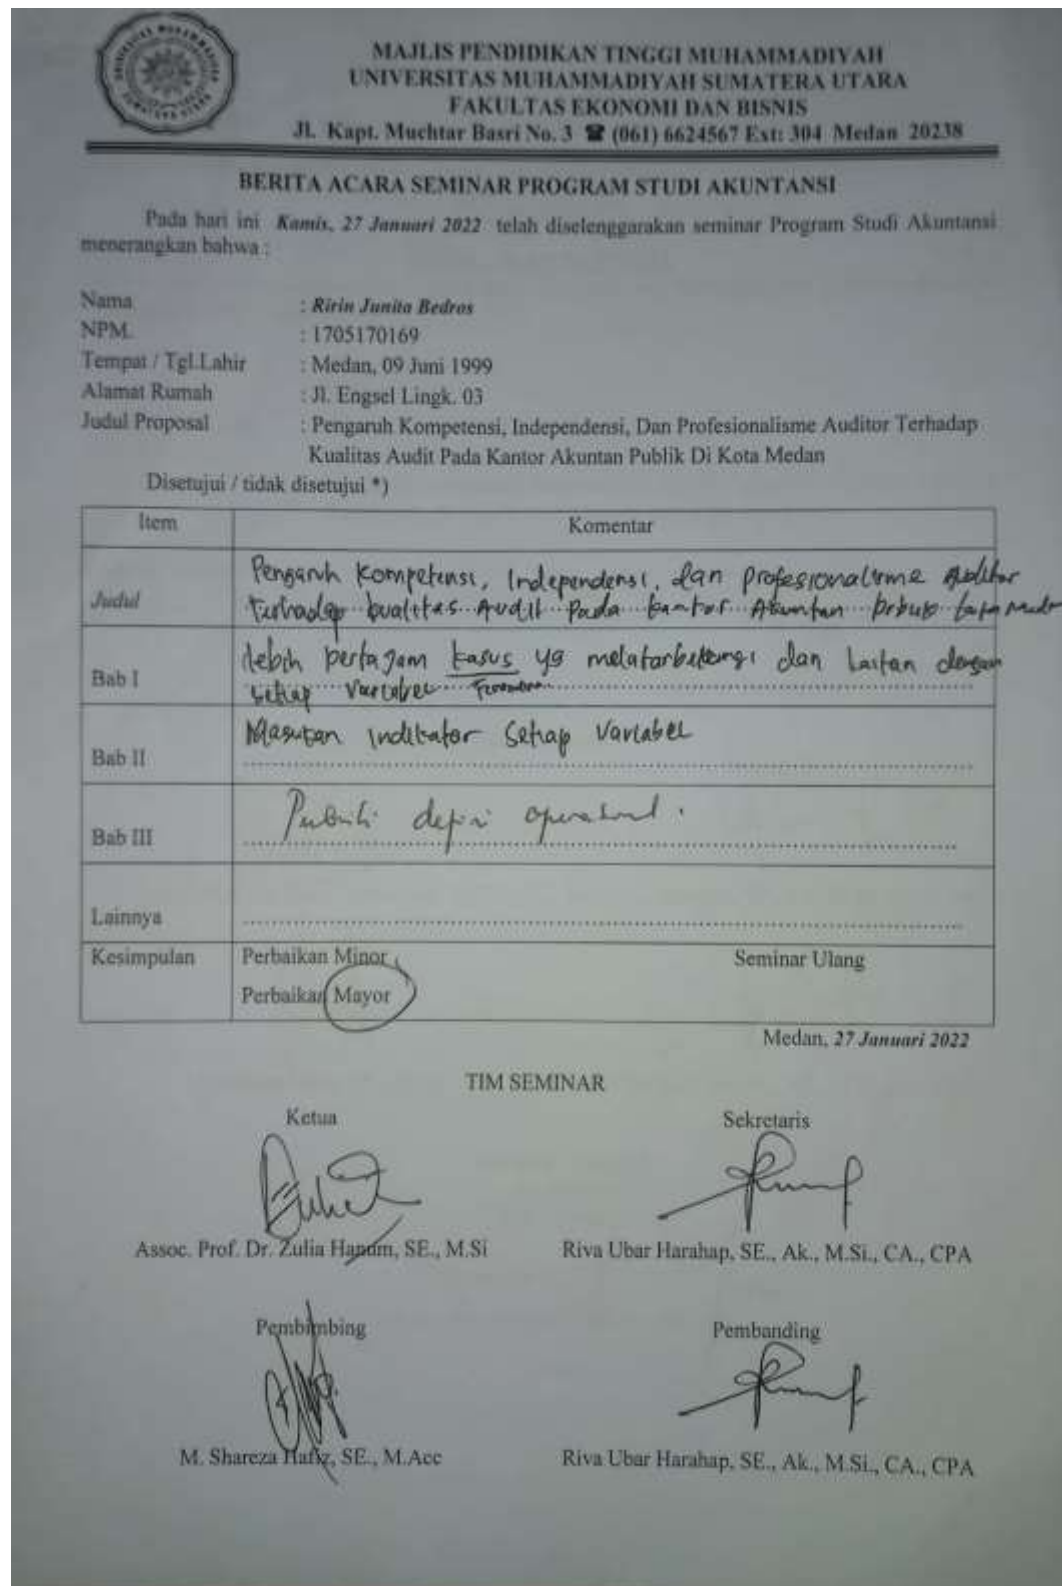 MAJLIS PENDIDIKAN TINGGI MUHAMMADIYAH
UNIVERSITAS MUHAMMADIYAH SUMATERA UTARA
FAKULTAS EKONOMI DAN BISNIS
Jl. Kapt. Muchtar Basri No. 3 ☎ (061) 6624567 Ext: 304 Medan 20238
BERITA ACARA SEMINAR PROGRAM STUDI AKUNTANSI
Pada hari ini Kamis, 27 Januari 2022 telah diselenggarakan seminar Program Studi Akuntansi
menerangkan bahwa :
Nama : Ririn Junita Bedros
NPM. : 1705170169
Tempat / Tgl.Lahir : Medan, 09 Juni 1999
Alamat Rumah : Jl. Engsel Lingk. 03
Judul Proposal : Pengaruh Kompetensi, Independensi, Dan Profesionalisme Auditor Terhadap
Kualitas Audit Pada Kantor Akuntan Publik Di Kota Medan
Disetujui / tidak disetujui *)
Item Komentar
Judul Pengaruh Kompetensi, Independensi, dan profesionalisme Auditor
terhadap kualitas Audit Pada kantor Akuntan
Bab I lebih pertajam kasus yg melatarbelakangi dan kaitan dengan
setiap Variabel
Bab II Masukan indikator setiap Variabel
Bab III operasional.
Lainnya
Kesimpulan Perbaikan Minor Seminar Ulang
Perbaikan Mayor
Medan, 27 Januari 2022
TIM SEMINAR
Ketua Sekretaris
Assoc. Prof. Dr. Zulia Hanum, SE., M.Si Riva Ubar Harahap, SE., Ak., M.Si., CA., CPA
Pembimbing Pembanding
M. Shareza Hafiz, SE., M.Acc Riva Ubar Harahap, SE., Ak., M.Si., CA., CPA